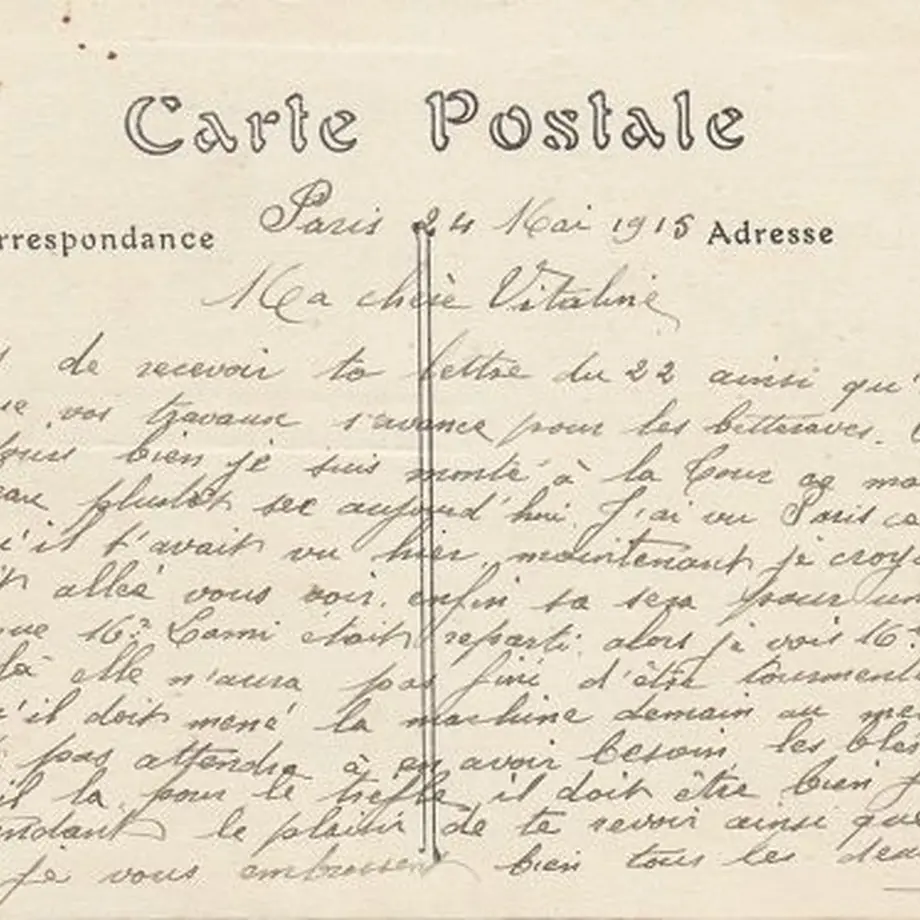 Carte Postale
rrespondance Paris 24 Mai 1915 Adresse
Ma chère Vitaline
de recevoir ta lettre du 22 ainsi qu'
vos travaux s'avance pour les betteraves.
bien je suis monté à la Tour ce ma
plustôt sec aujourd'hui. J'ai vu Paris ce
u'il t'avait vu hier, maintenant je croya
allée vous voir. enfin sa sera pour un
que Lami était reparti. alors je vois
là elle n'aura pas fini d'être tourmenté
u'il doit mené la machine demain au me
pas attendre à en avoir besoin, les
il la. pour le trefle, il doit être bien
endant le plaisir de te revoir ainsi que
je vous embrassent bien tous les deu